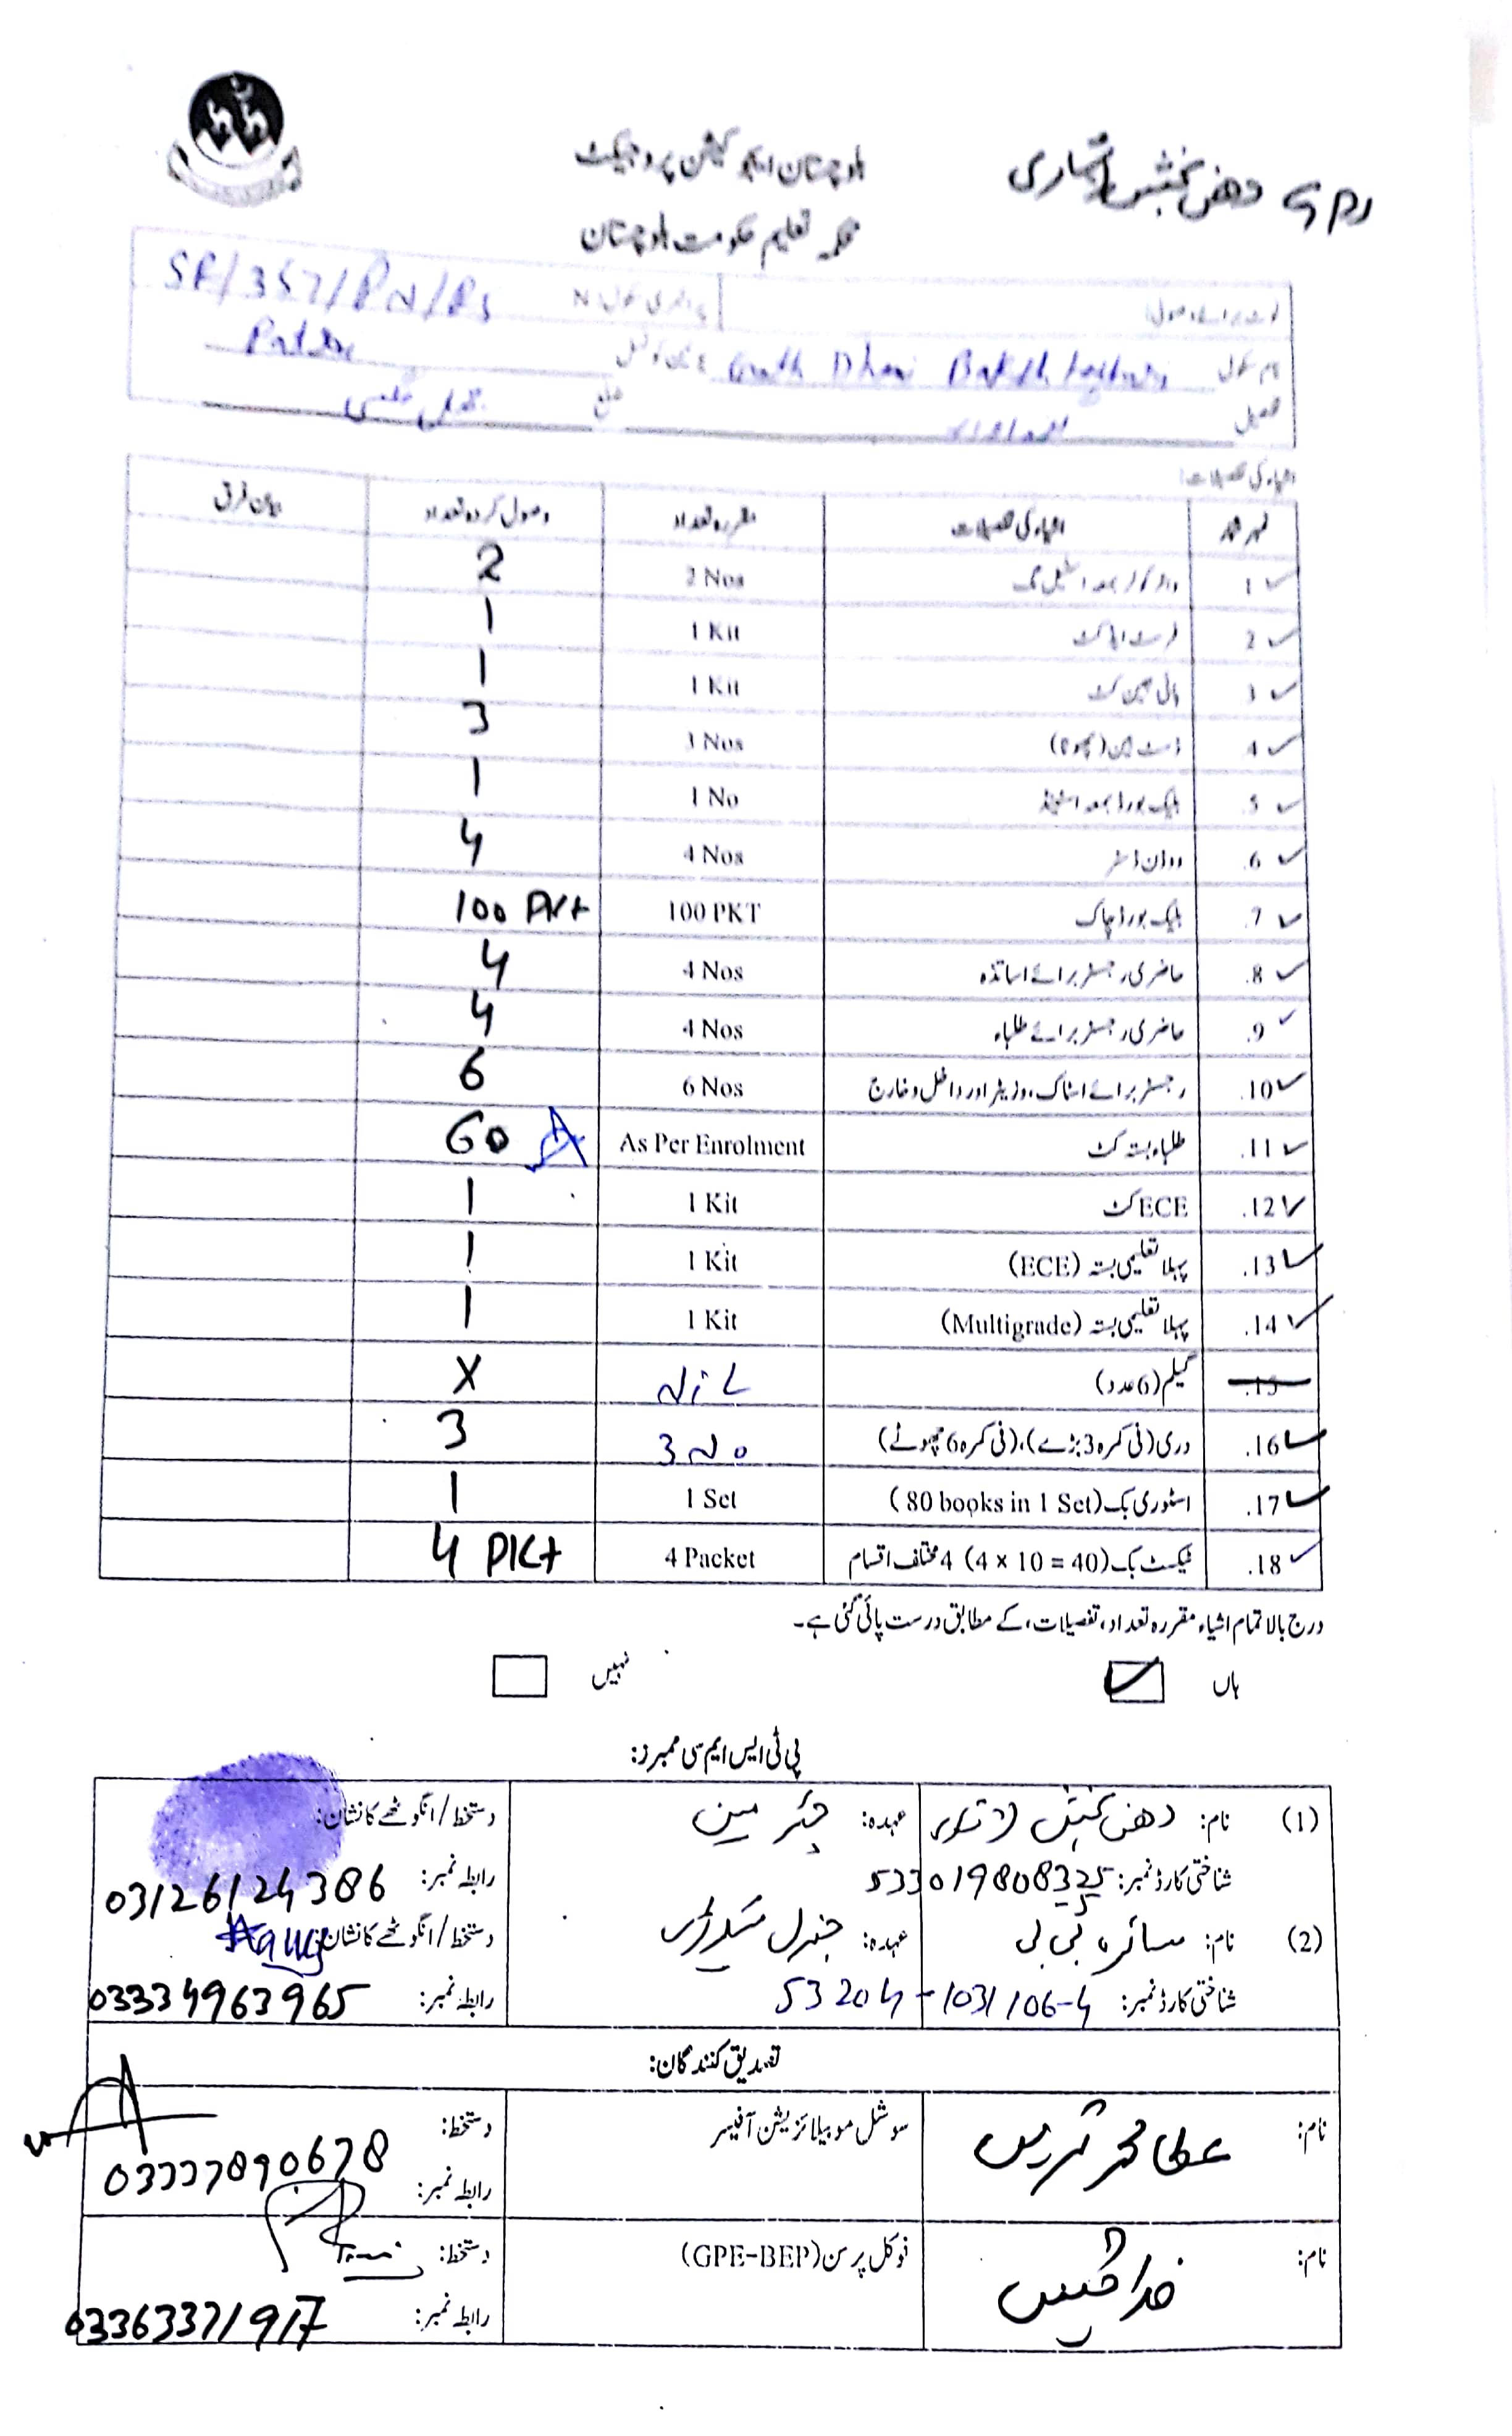 GPS دھنی بخش لاشاری
بلوچستان ایجوکیشن پروجیکٹ
محکمہ تعلیم حکومت بلوچستان
نام سکول Goth Dhani Bakhsh
تحصیل ضلع جھل مگسی
اشیاء کی تفصیلات:
نمبر شمار اشیاء کی تفصیلات مقررہ تعداد وصول کردہ تعداد بیان فرق
1 واٹر کولر بمعہ اسٹیل مگ 2 Nos 2
2 فرسٹ ایڈ کٹ 1 Kit 1
3 ہائی جین کٹ 1 Kit 1
4 ڈسٹ بین (چھوٹا) 3 Nos 3
5. بلیک بورڈ بمعہ اسٹینڈ 1 No 1
6. ڈسٹر 4 Nos 4
7. بلیک بورڈ چاک 100 PKT 100 PKt
8. حاضری رجسٹر برائے اساتذہ 4 Nos 4
9. حاضری رجسٹر برائے طلباء 4 Nos 4
10. رجسٹر برائے اسٹاک، وزیٹر اور داخل و خارج 6 Nos 6
11. طلباء بستہ کٹ As Per Enrolment 60
12. ECE کٹ 1 Kit 1
13. پہلا تعلیمی بستہ (ECE) 1 Kit 1
14. پہلا تعلیمی بستہ (Multigrade) 1 Kit 1
15. گیلم (6 عدد) NiL X
16. دری (فی کمرہ 3 بڑے)، (فی کمرہ 6 چھوٹے) 3 No 3
17. اسٹوری بک (80 books in 1 Set) 1 Set 1
18. ٹیکسٹ بک (4 x 10 = 40) 4 مختلف اقسام 4 Packet 4 PKt
درج بالا تمام اشیاء مقررہ تعداد، تفصیلات، کے مطابق درست پائی گئی ہے۔
ہاں نہیں
پی ٹی ایس ایم سی ممبرز:
(1) نام: دھنی بخش لاشاری عہدہ: چئرمین دستخط/انگوٹھے کا نشان:
شناختی کارڈ نمبر: رابطہ نمبر: 03126124386
(2) نام: سائرہ بی بی عہدہ: جنرل سیکرٹری دستخط/انگوٹھے کا نشان:
شناختی کارڈ نمبر: 53204-1031106-4 رابطہ نمبر: 03334963965
تصدیق کنندگان:
نام: عطا محمد سوشل موبیلائزیشن آفیسر دستخط:
رابطہ نمبر: 03337890678
نام: خدا بخش فوکل پرسن (GPE-BEP) دستخط:
رابطہ نمبر: 03363371917